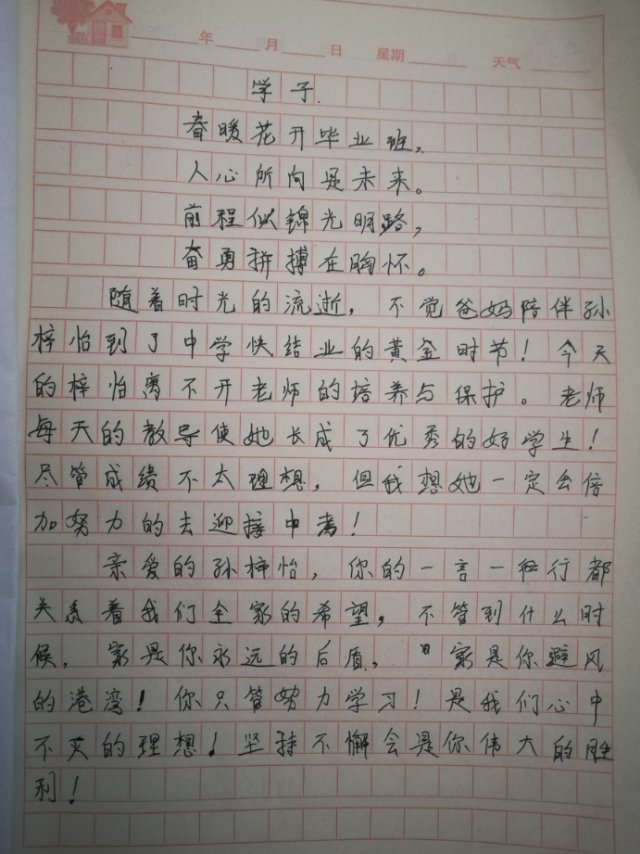 年 月 日 星期 天气
学子.
春暖花开毕业班,
人心所向是未来。
前程似锦光明路,
奋勇拼搏在胸怀。
随着时光的流逝, 不觉爸妈陪伴孙
梓怡到了中学快结业的黄金时节! 今天
的梓怡离不开老师的培养与保护。 老师
每天的教导使她长成了优秀的好学生!
尽管成绩不太理想, 但我想她一定会倍
加努力的去迎接中考!
亲爱的孙梓怡, 你的一言一行都
关系着我们全家的希望, 不管到什么时
候, 家是你永远的后盾, 家是你避风
的港湾! 你只管努力学习! 是我们心中
不灭的理想! 坚持不懈会是你伟大的胜
利!